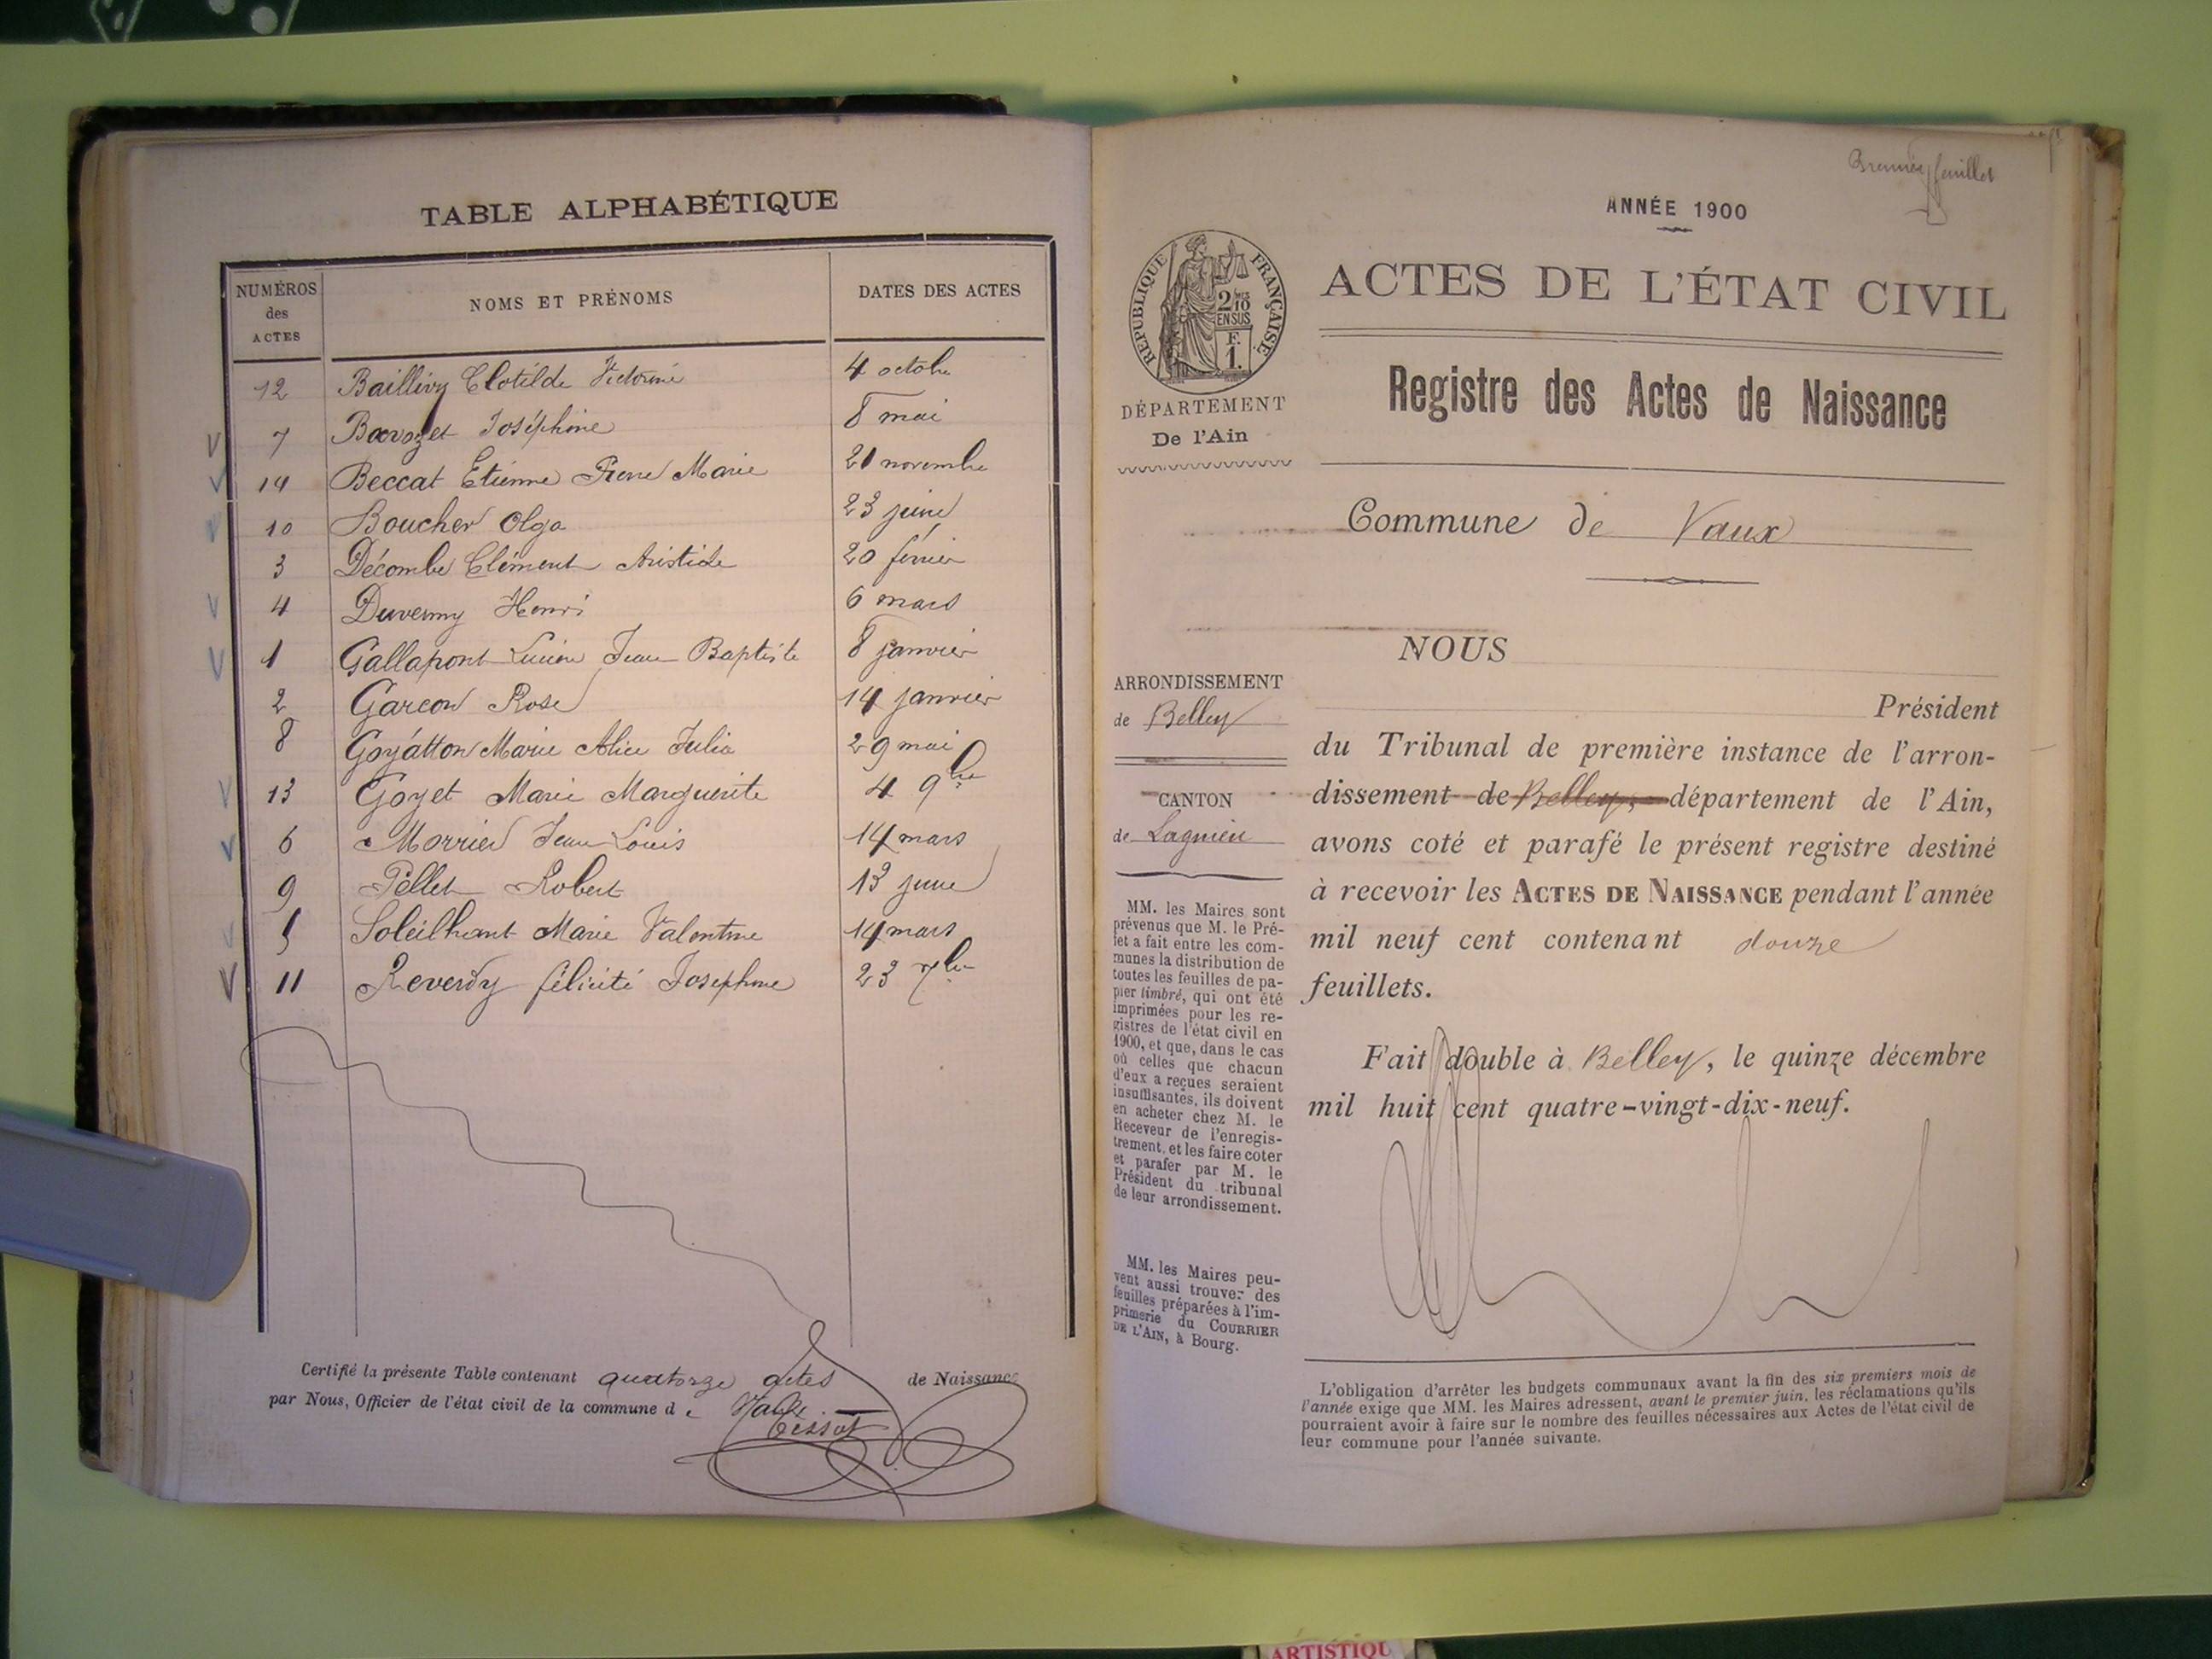 TABLE ALPHABÉTIQUE
NUMÉROS des ACTES NOMS ET PRÉNOMS DATES DES ACTES
12 Baillivy Clotilde Victorine 4 octobre
7 Joséphine 8 mai
14 Beccat Etienne Pierre Marie 21 novembre
10 Boucher Olga 23 juin
3 Décombe Clément Aristide 20 février
4 Henri 6 mars
1 Gallapont Lucien Jean Baptiste 8 janvier
2 Garcon Rose 14 janvier
8 Goyatton Marie Alice Julia 29 mai
13 Goyet Marie Marguerite 4 9bre
6 Morrier Jean Louis 14 mars
9 Pellet Robert 13 juin
5 Soleilhant Marie Valentine 14 mars
11 Reverdy félicité Josephine 23 7bre
Certifié la présente Table contenant quatorze actes de Naissance
par Nous, Officier de l'état civil de la commune de Vaux
Tissot
Premier feuillet
ANNÉE 1900
RÉPUBLIQUE FRANÇAISE
2/10 EN SUS
F. 1.
ACTES DE L'ÉTAT CIVIL
DÉPARTEMENT
De l'Ain
Registre des Actes de Naissance
Commune de Vaux
NOUS
ARRONDISSEMENT
de Belley
CANTON
de Lagnieu
Président
du Tribunal de première instance de l'arron-
dissement de Belley, département de l'Ain,
avons coté et parafé le présent registre destiné
à recevoir les ACTES DE NAISSANCE pendant l'année
mil neuf cent contenant douze
feuillets.
Fait double à Belley, le quinze décembre
mil huit cent quatre-vingt-dix-neuf.
MM. les Maires sont
prévenus que M. le Pré-
fet a fait entre les com-
munes la distribution de
toutes les feuilles de pa-
pier timbré, qui ont été
imprimées pour les re-
gistres de l'état civil en
1900, et que, dans le cas
où celles que chacun
d'eux a reçues seraient
insuffisantes, ils doivent
en acheter chez M. le
Receveur de l'enregis-
trement, et les faire coter
et parafer par M. le
Président du tribunal
de leur arrondissement.
MM. les Maires peu-
vent aussi trouver des
feuilles préparées à l'im-
primerie du COURRIER
DE L'AIN, à Bourg.
L'obligation d'arrêter les budgets communaux avant la fin des six premiers mois de
l'année exige que MM. les Maires adressent, avant le premier juin, les réclamations qu'ils
pourraient avoir à faire sur le nombre des feuilles nécessaires aux Actes de l'état civil de
leur commune pour l'année suivante.
ARTISTIQU